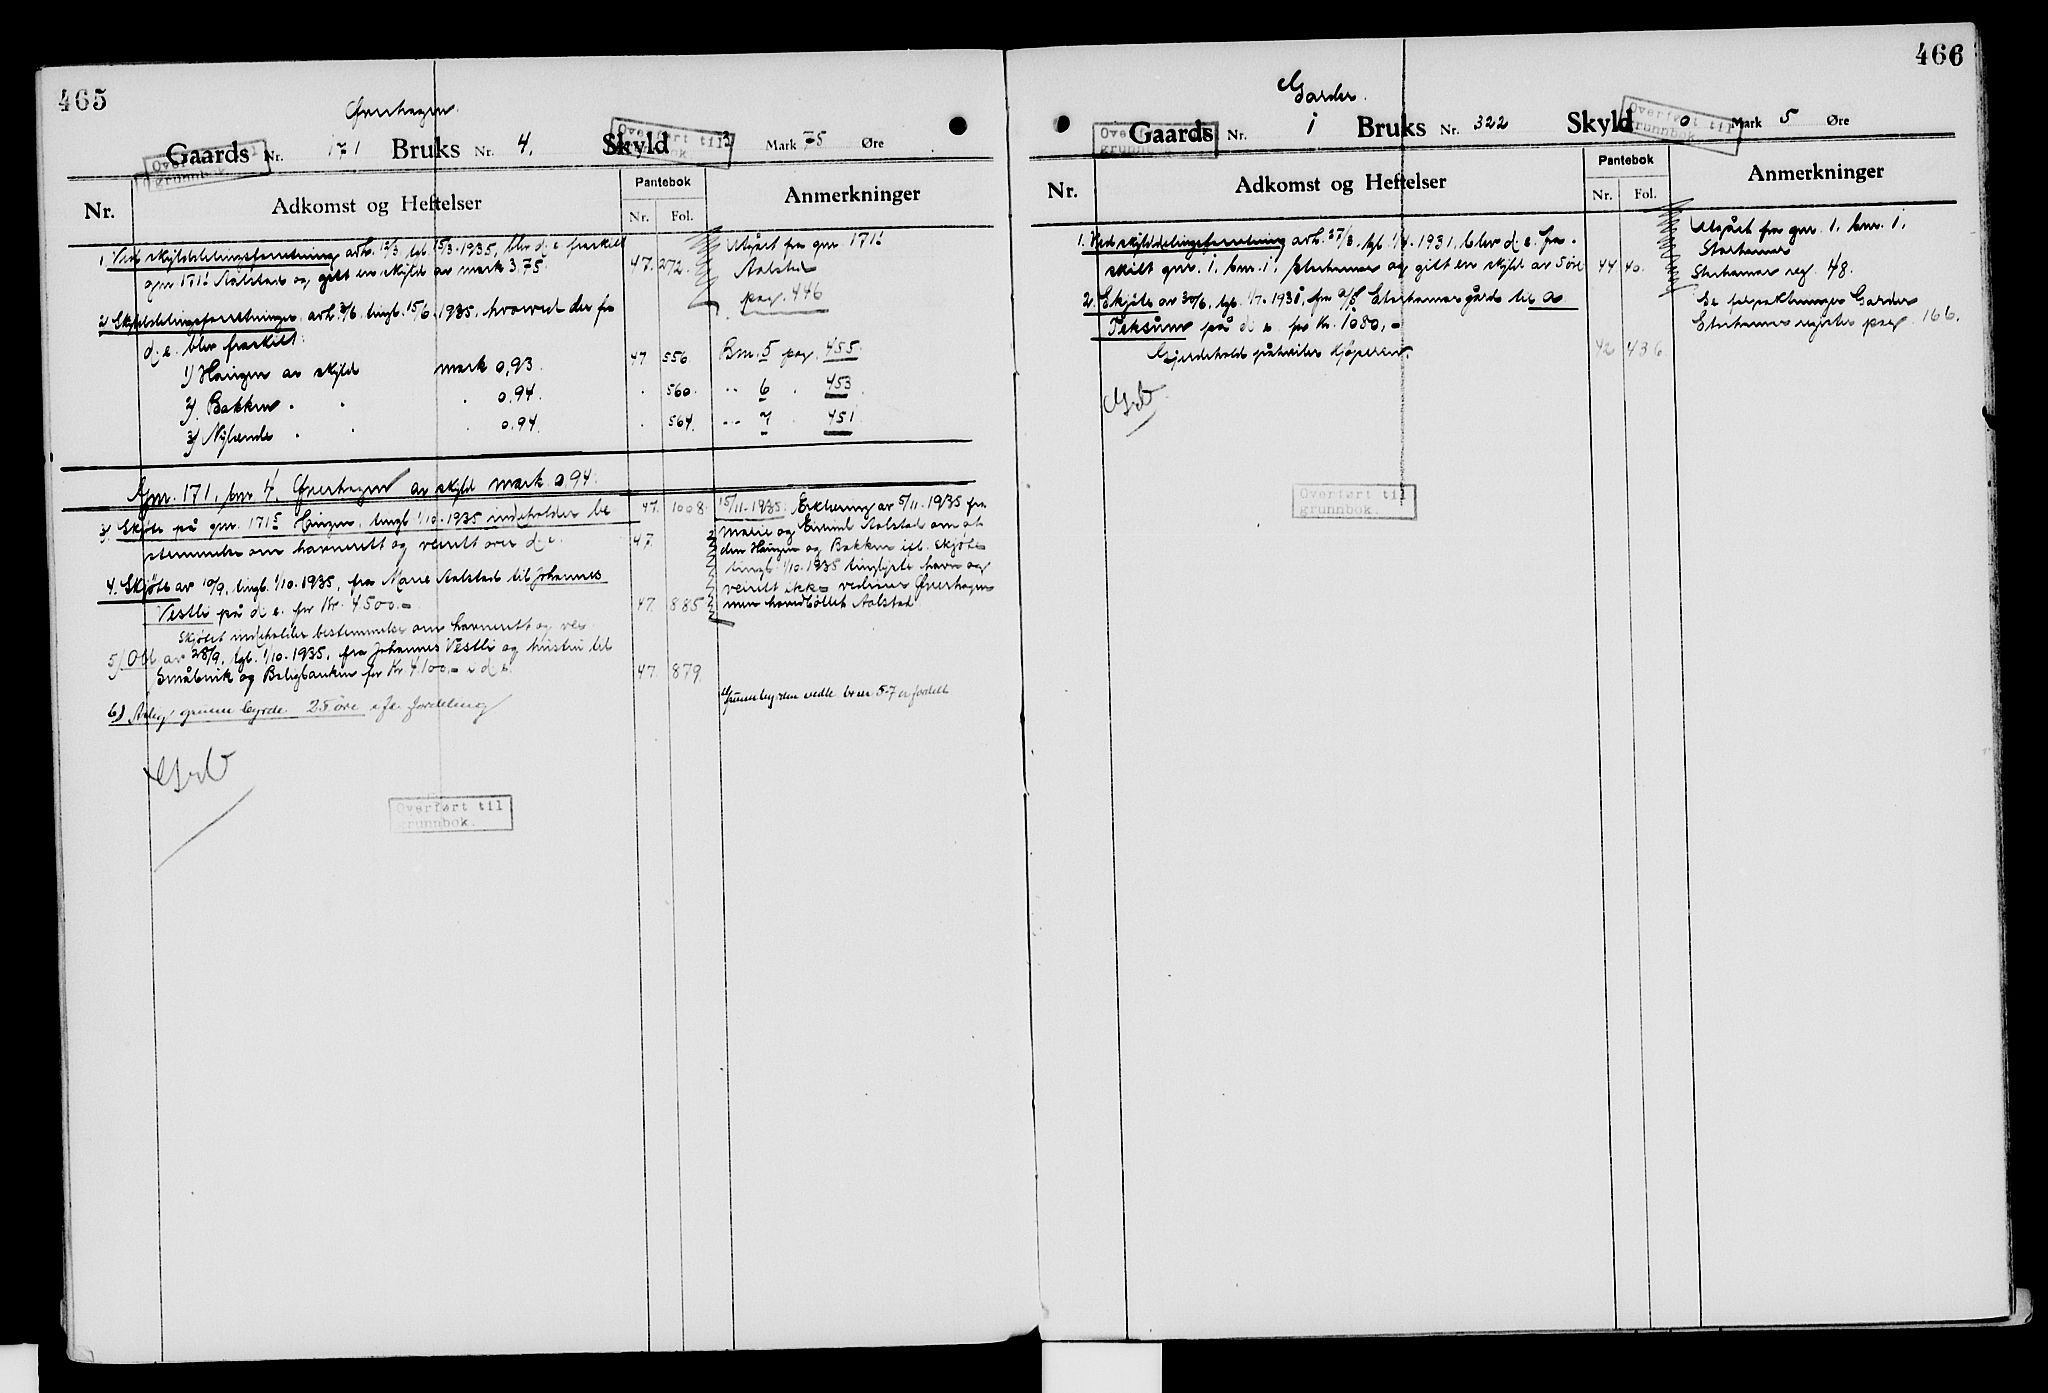 465
Øverhagen.
Gaards Nr. 171 Bruks Nr. 4. Skyld 3 Mark 75 Øre
Overført til grunnbok
Overført til grunnbok
Nr. Adkomst og Heftelser Pantebok Nr. Fol. Anmerkninger
1. Ved skylddelingsforretning avh. 12/3, tgl. 15/3-1935, blev d. e. fraskilt
gnr. 171¹ Aalstad og gitt en skyld av mark 3.75. 47. 272.
Utgått fra gnr 171¹
Aalstad
pag. 446
2) Skylddelingsforretninger avh. 3/6, tingl. 15/6-1935, hvorved der fra
d. e. blev fraskilt:
1) Haugen av skyld mark 0,93. 47 556 Bnr. 5 pag. 455.
2) Bakken " " . 0.94. . 560. " 6 . 453.
3) Nylænde " " . 0.94. . 564. " 7 . 451
Gnr. 171, bnr. 4, Øverhagen av skyld mark 0.94.
3) Skjøte på gnr. 171⁵ Haugen, tingl. 1/10-1935 indeholder be 47. 1008.
stemmelse om havnerett og veirett over d. e. 47.
4. Skjøte av 10/9, tingl. 1/10-1935, fra Marie Aalstad til Johannes
Vestli på d. e. for Kr. 4500.- 47. 885
Skjøtet indeholder bestemmelse om havnerett og vei
5) Obl av 28/9, tgl. 1/10-1935, fra Johannes Vestli og hustru til
Småbruk og Boligbanken for Kr 4100.- i d. e. 47. 879.
6) Årleg grunnbyrde 25 øre efter fordeling
15/11-1935: Erklæring av 5/11-1935 fra
Marie og Aalstad om at
den Haugen og Bakken ifl. skjøte
tingl. 1/10-1935 tinglyste havn og
veirett ikke vedrører Øverhagen
men hovedbølet Aalstad
Grunnbyrden vedk. br.nr 5-7 er fordelt
Overført til
grunnbok.
466
Garder.
Gaards Nr. 1 Bruks Nr. 322 Skyld 0 Mark 5 Øre
Overført til grunnbok
Overført til grunnbok
Nr. Adkomst og Heftelser Pantebok Nr. Fol. Anmerkninger
1. Ved skylddelingsforretning avh. 27/3, tgl. 1/4-1931, blev d. e. fra-
skilt gnr. 1, bnr. 1, Storhamar og gitt en skyld av 5 øre 44 40.
2. Skjøte av 30/6, tgl. 1/7-1931, fra A/S Storhamar gård til A
Teksum på d. e. for Kr. 1080,- 42 436.
Gjerdehold påhviler kjøperen.
Utgått fra gnr. 1, bnr. 1,
Storhamar
Storhamar reg. 48.
Se forpaktninger Garder
Storhamar register pag. 166.
Overført til
grunnbok.